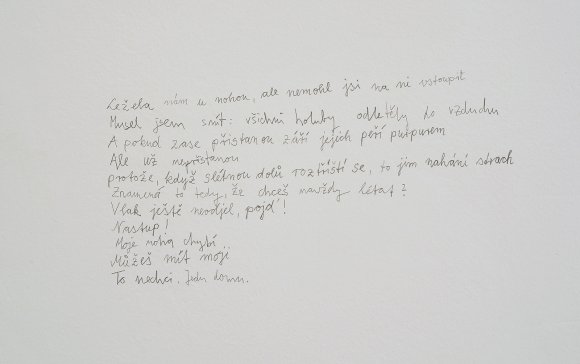 Ležela nám u nohou, ale nemohl jsi na ni vstoupit
Musel jsem snít: všichni holuby odletěly do vzduchu
A pokud zase přistanou září jejich peří purpurem
Ale už nepřistanou
protože, když slétnou dolů roztříští se, to jim nahání strach
Znamená to tedy, že chceš navždy létat?
Vlak ještě neodjel, pojď!
Nastup!
Moje noha chybí..
Můžeš mít moji
To nechci. Jedu domu.